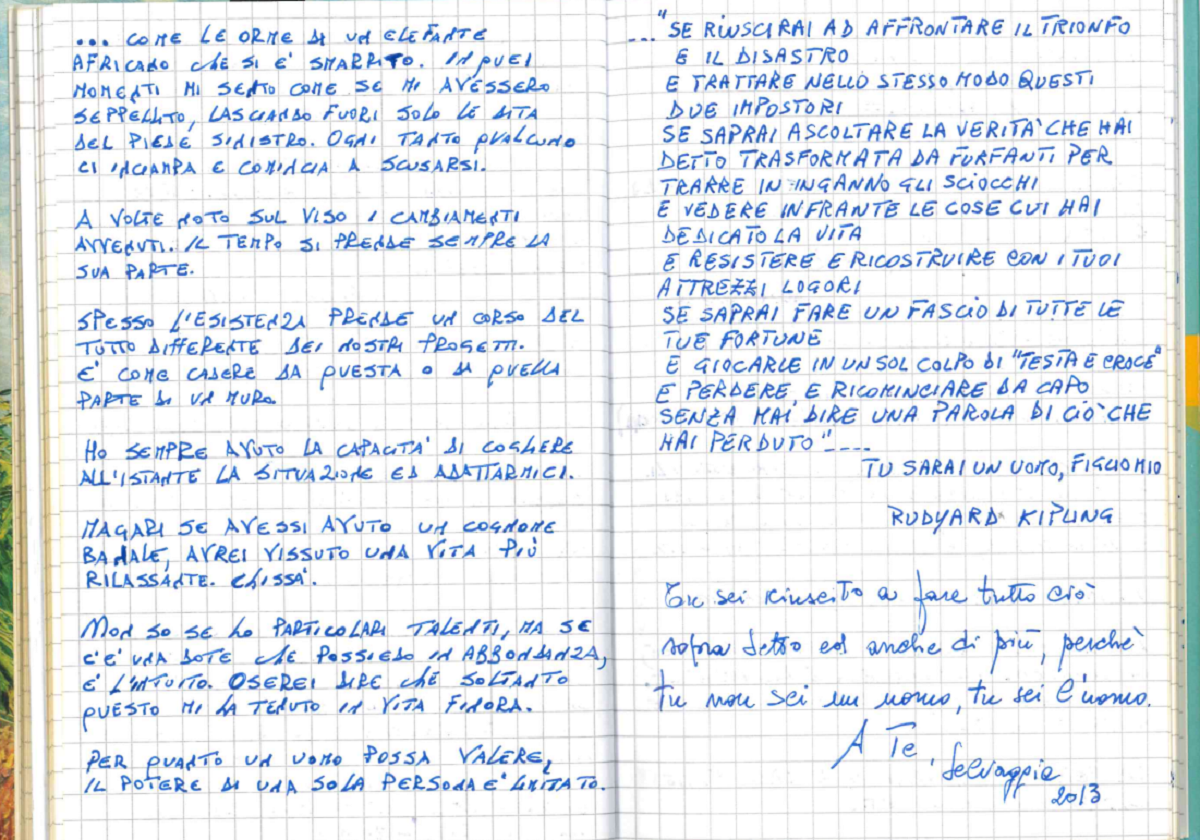 ... COME LE ORME DI UN ELEFANTE
AFRICANO CHE SI E' SMARRITO. IN QUEI
MOMENTI MI SENTO COME SE MI AVESSERO
SEPPELLITO, LASCIANDO FUORI SOLO LE DITA
DEL PIEDE SINISTRO. OGNI TANTO QUALCUNO
CI INCIAMPA E COMINCIA A SCUSARSI.
A VOLTE NOTO SUL VISO I CAMBIAMENTI
AVVENUTI. IL TEMPO SI PRENDE SEMPRE LA
SUA PARTE.
SPESSO L'ESISTENZA PRENDE UN CORSO DEL
TUTTO DIFFERENTE DEI NOSTRI PROGETTI.
E' COME CADERE DA QUESTA O DA QUELLA
PARTE DI UN MURO.
HO SEMPRE AVUTO LA CAPACITA' DI COGLIERE
ALL'ISTANTE LA SITUAZIONE ED ADATTARMICI.
MAGARI SE AVESSI AVUTO UN COGNOME
BANALE, AVREI VISSUTO UNA VITA PIÙ
RILASSANTE. CHISSA'.
NON SO SE HO PARTICOLARI TALENTI, MA SE
C'E' UNA DOTE CHE POSSIEDO IN ABBONDANZA,
E' L'INTUITO. OSEREI DIRE CHE SOLTANTO
QUESTO MI HA TENUTO IN VITA FINORA.
PER QUANTO UN UOMO POSSA VALERE,
IL POTERE DI UNA SOLA PERSONA E' LIMITATO.
... "SE RIUSCIRAI AD AFFRONTARE IL TRIONFO
E IL DISASTRO
E TRATTARE NELLO STESSO MODO QUESTI
DUE IMPOSTORI
SE SAPRAI ASCOLTARE LA VERITA' CHE HAI
DETTO TRASFORMATA DA FURFANTI PER
TRARRE IN INGANNO GLI SCIOCCHI
E VEDERE INFRANTE LE COSE CUI HAI
DEDICATO LA VITA
E RESISTERE E RICOSTRUIRE CON I TUOI
ATTREZZI LOGORI
SE SAPRAI FARE UN FASCIO DI TUTTE LE
TUE FORTUNE
E GIOCARLE IN UN SOL COLPO DI "TESTA E CROCE"
E PERDERE, E RICOMINCIARE DA CAPO
SENZA MAI DIRE UNA PAROLA DI CIO' CHE
HAI PERDUTO"....
TU SARAI UN UOMO, FIGLIO MIO
RUDYARD KIPLING
Tu sei riuscito a fare tutto ciò
sopra detto ed anche di più, perchè
tu non sei un uomo, tu sei l'uomo.
A Te,
Selvaggia
2013